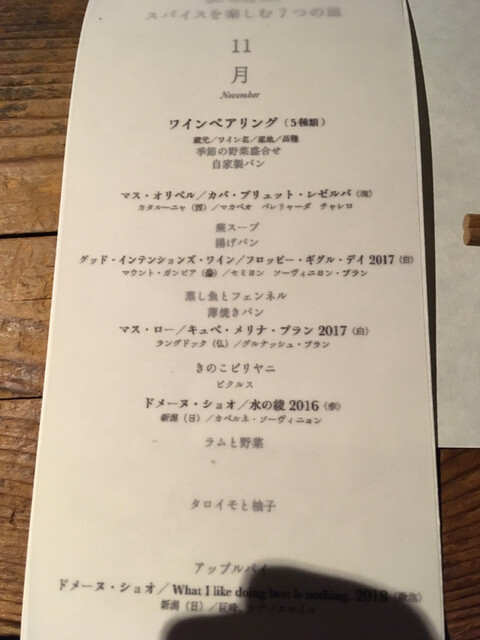 スパイスを楽しむ7つの皿
11
月
November
ワインペアリング（5種類）
蔵元／ワイン名／産地／品種
季節の野菜盛合せ
自家製パン
マス・オリベル／カバ・ブリュット・シゼルバ（泡）
カタルーニャ（西）／マカベオ パレリャーダ チャレロ
燕スープ
揚げパン
グッド・インテンションズ・ワイン／フロッピー・ギグル・デイ 2017（白）
マウント・ガンビア（豪）／セミヨン ソーヴィニヨン・ブラン
蒸し魚とフェンネル
薄焼きパン
マス・ロー／キュベ・メリナ・ブラン 2017（白）
ラングドック（仏）／グルナッシュ・ブラン
きのこビリヤニ
ピクルス
ドメーヌ・ショオ／水の綾 2016（赤）
新潟（日）／カベルネ・ソーヴィニョン
ラムと野菜
タロイモと柚子
アップルパイ
ドメーヌ・ショオ／What I like doing best is nothing. 2018（微泡）
新潟（日）／巨峰